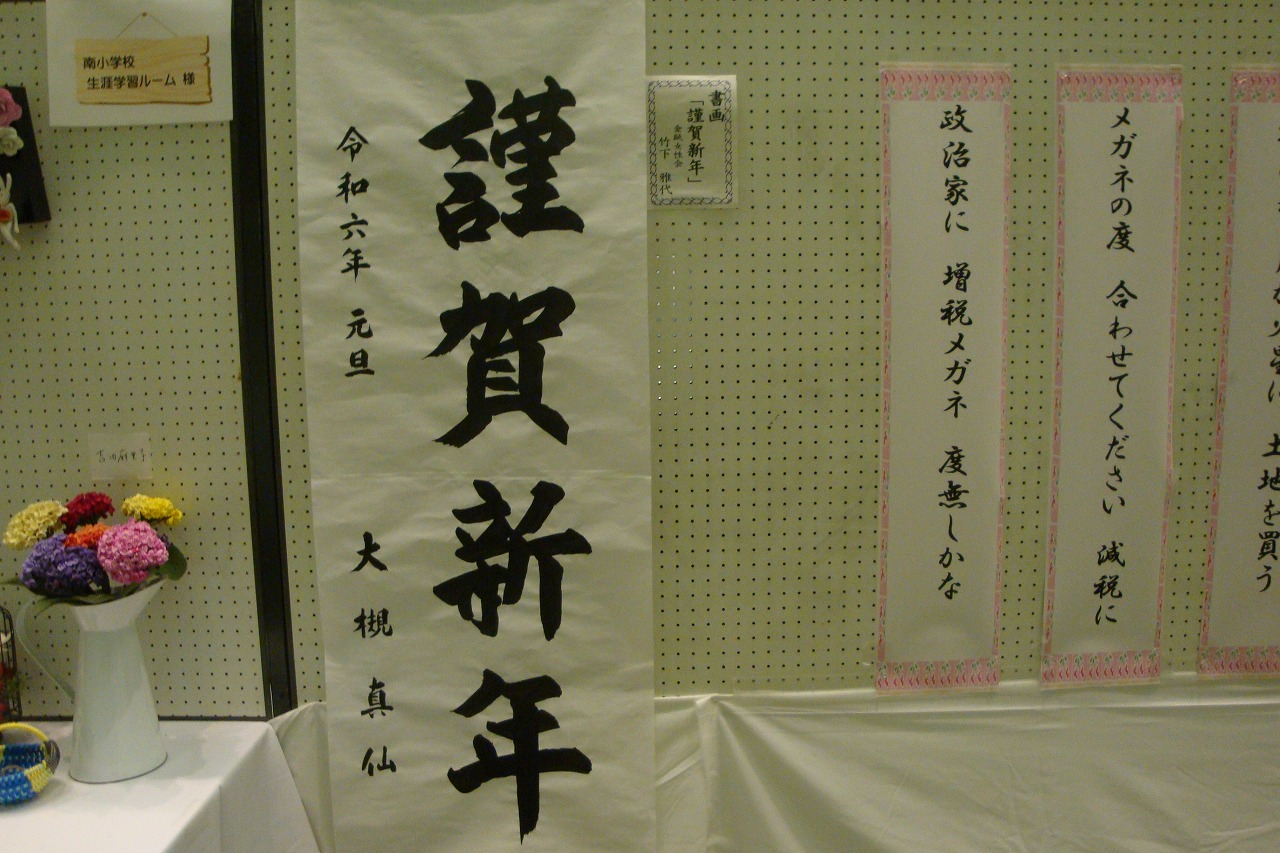 南小学校
生涯学習ルーム 様
謹賀新年
令和六年 元旦
大槻真仙
書画
「謹賀新年」
金融女性会
竹下 雅代
政治家に 増税メガネ 度無しかな
メガネの度 合わせてください 減税に
土地を買う